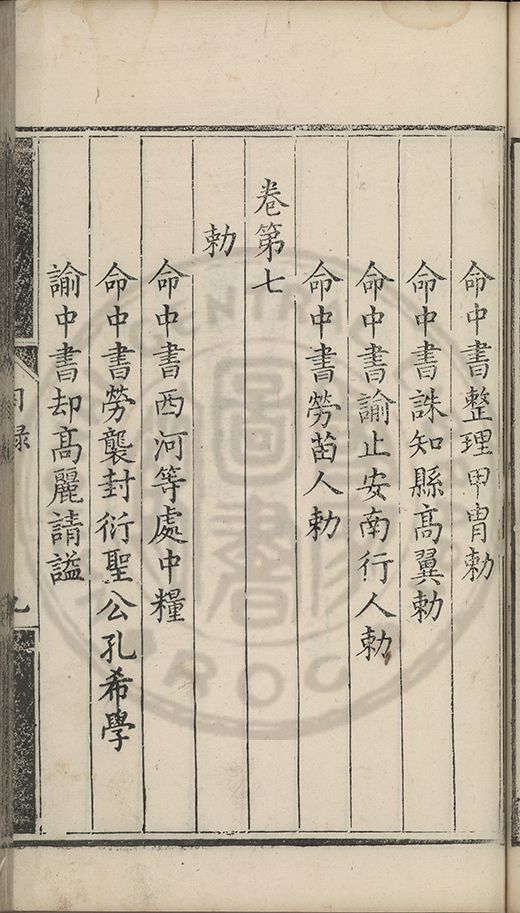 命中書整理甲冑勅
命中書誅知縣高翼勅
命中書諭止安南行人勅
命中書勞苗人勅
卷第七
勅
命中書西河等處中糧
命中書勞襲封衍聖公孔希學
諭中書却高麗請謚
目錄
九